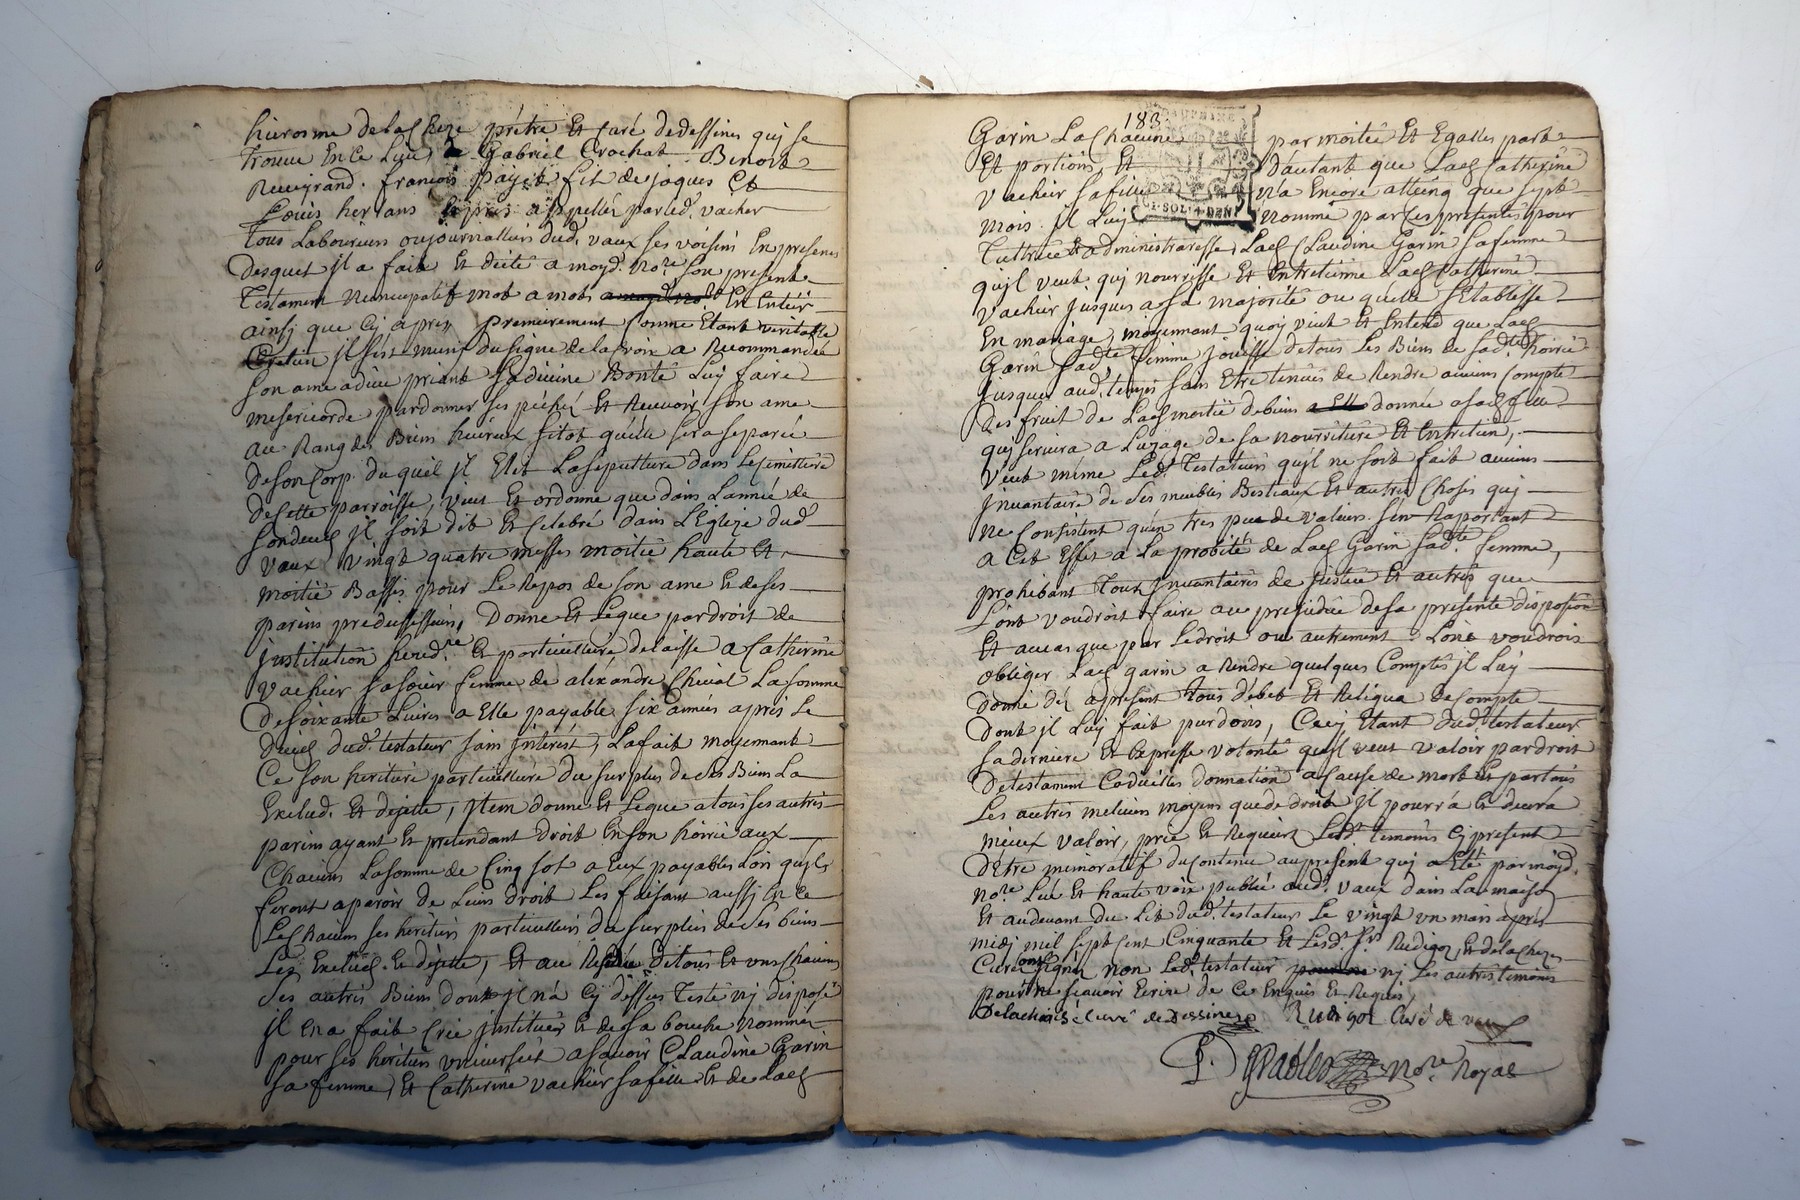 hierosme delacheze prétre Et Curé dedessines quj se
trouve Ence Lieu, Gabriel Crochat. Benoit
francois payet fils de joques Et
Louis hertans appellés par led. vacher
Tous Laboureurs oujournalliers dud. vaux ses voisins En presence
desquels jl a fait Et dicté a moyd. no.re son present
Testament Nuncupatif mot a mots En Entier
ainsj que Cy apres premierement Comme Etant veritable
Cretien jl sest muni du signe de la Croix a Recommandée
Son ame a dieu priant sa divine Bonté Luy faire
misericorde pardonner ses péchéz Et Recevoir Son ame
au Rang des Biens heureux sitot quelle sera separée
de son Corp. duquel jl Elit La sepulture dans Le Cimettiere
de Cette parroisse, veut Et ordonne que dans Lannée de
son deces jl soit dit Et Celebré dans LEglize dud.
vaux vingt quatre messes moitié haute Et
moitié Basses pour Le Repos de son ame Et de ses
parens predecesseurs, Donne Et Legue par droit de
justitution hered.re Et particulliere delaisse a Catherine
vachier sa soeur femme de aléxandre Chival La somme
de soixante Livres a Elle payable six années après Le
déces dud. testateur sans jnterest, La fait moyennant
Ce son heritiere particulliere du surplus de ses Biens La
Exclud. Et dejette, jtem donne Et Legue a tous ses autres
parens ayant Et pretendant droit En son hoirie aux
Chacuns La somme de Cinq sol a Eux payables Lors quils
feront aparoir de Leurs droit Les faisant aussj En ce
Les Chacuns ses heritiers particulliers du surplus de ses biens
Les Exclud. Et dejette, Et au Residu de tous Et uns Chacuns
Ses autres Biens dont jl n'a Cy dessus Testé nj disposé
jl En a fait Crée jnstitues Et de sa bouche Nommes
pour ses heritiers universels a savoir Claudine Garin
Sa femme, Et Catherine vachier sa fille Et de Lad.
183.
Garin La Chacune par moitié Et Egalles part
Et portions, Et D'autant que Lad. Catherine
vachier sa fille n'a Encore atteing que sept
mois. jl Luy nomme par Ces presentes pour
Tuttrice Et administraresse, Lad. Claudine Garin sa femme
qujl veut. quj nourrisse Et Entretienne Lad. Catherine
vachier jusques a sa majorité ou quelle S'Etablisse
En mariage, moyennant quoy veut Et Entend que Lad.
Garin sad.te femme jouisse de tous Les Biens de sad.te hoirie
jusques aud. temps sans Etre tenues de Rendre aucuns Compte
des fruit de Lad. moitié de biens donnée a sad. fille
quj servira a Luzage de sa nourriture Et Entretien,
veut même Led. Testateur qujl ne soit fait aucuns
jnventaire de ses meubles Bestiaux Et autres Choses quj
ne Consistent qu'en tres peu de valeurs s'en Raportant
a Cet Effet a La probité de Lad. Garin sad.te femme,
prohibant Tous jnventaires de justice Et autres que
L'ont voudroit faire au prejudice de sa presente disposion
Et au cas que par Le droit ou autrement L'ont voudroit
obliger Lad. garin a Rendre quelques Comptes jl Luy
donne dez apresent Tous débet Et Reliqua de Compte
Dont jl Luy fait pur dons, Cecy Etant dud. testateur
sa derniere Et Expresse volonté qujl veut valoir par droit
de testament Codicilles donnation a Cause de mort Et par tous
Les autres melieurs moyens que de droit jl pourrá Et devrá
mieux valoir, prie Et Requiert Lesd. temoins Cj present
D'Etre memoratif du Contenu au present quj a Eté par moyd.
no.re Lué Et haute voix publié aud. vaux dans La maison
Et au devant du Lit dud. testateur Le vingt un mars après
midj mil sept Cent Cinquante Et Lesd. S.rs Rudigoz Et de la Cheze
Curé ont signéz non Led. testateur nj Les autres temoins
pour ne scavoir Ecrire de Ce Enquis Et Requis,
Delachaise curé de Dessines Rudigoz Curé de vaux
no.re Royal